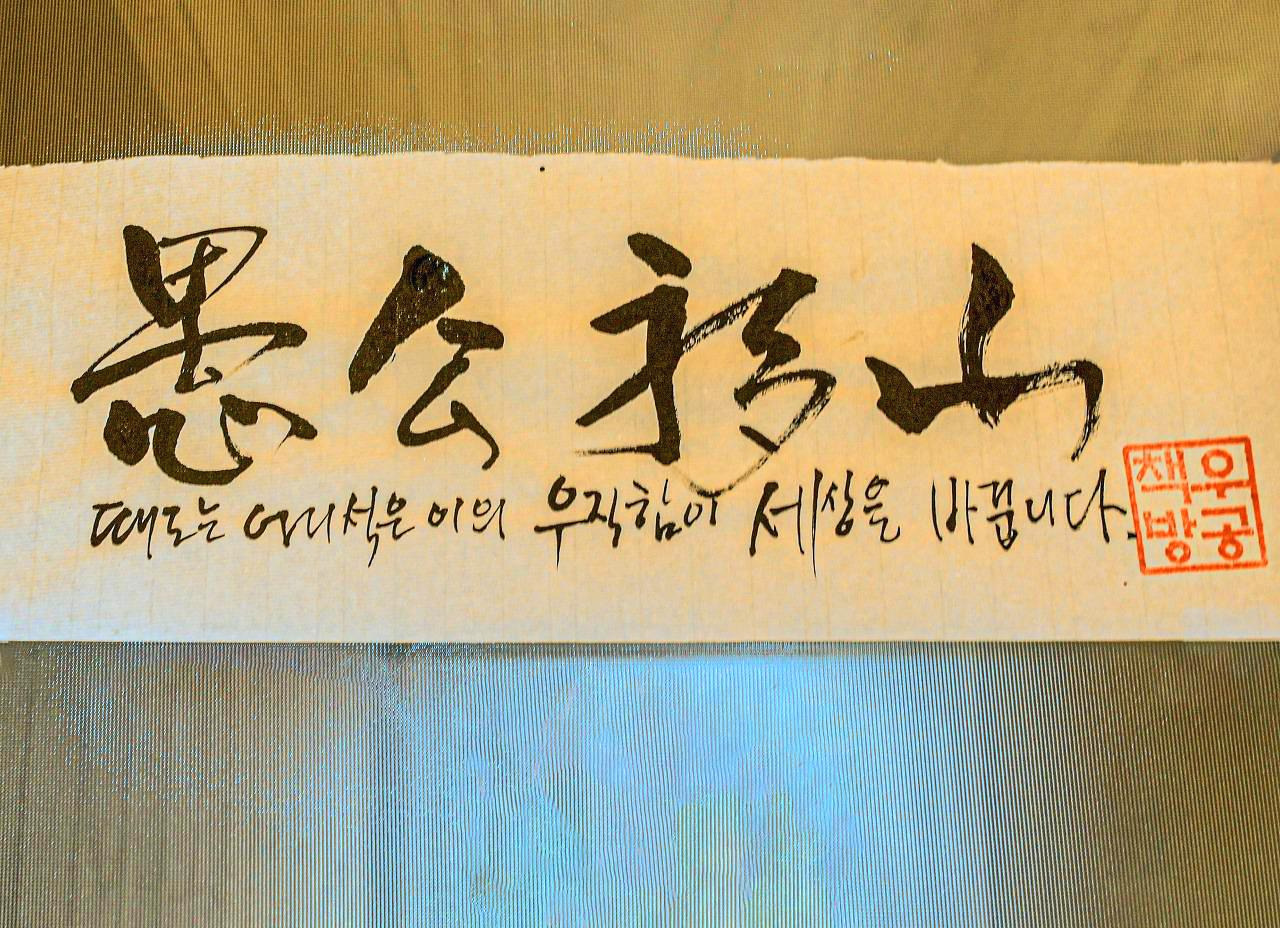 愚公移山
때로는 어리석은 이의 우직함이 세상을 바꿉니다.
책우
방공